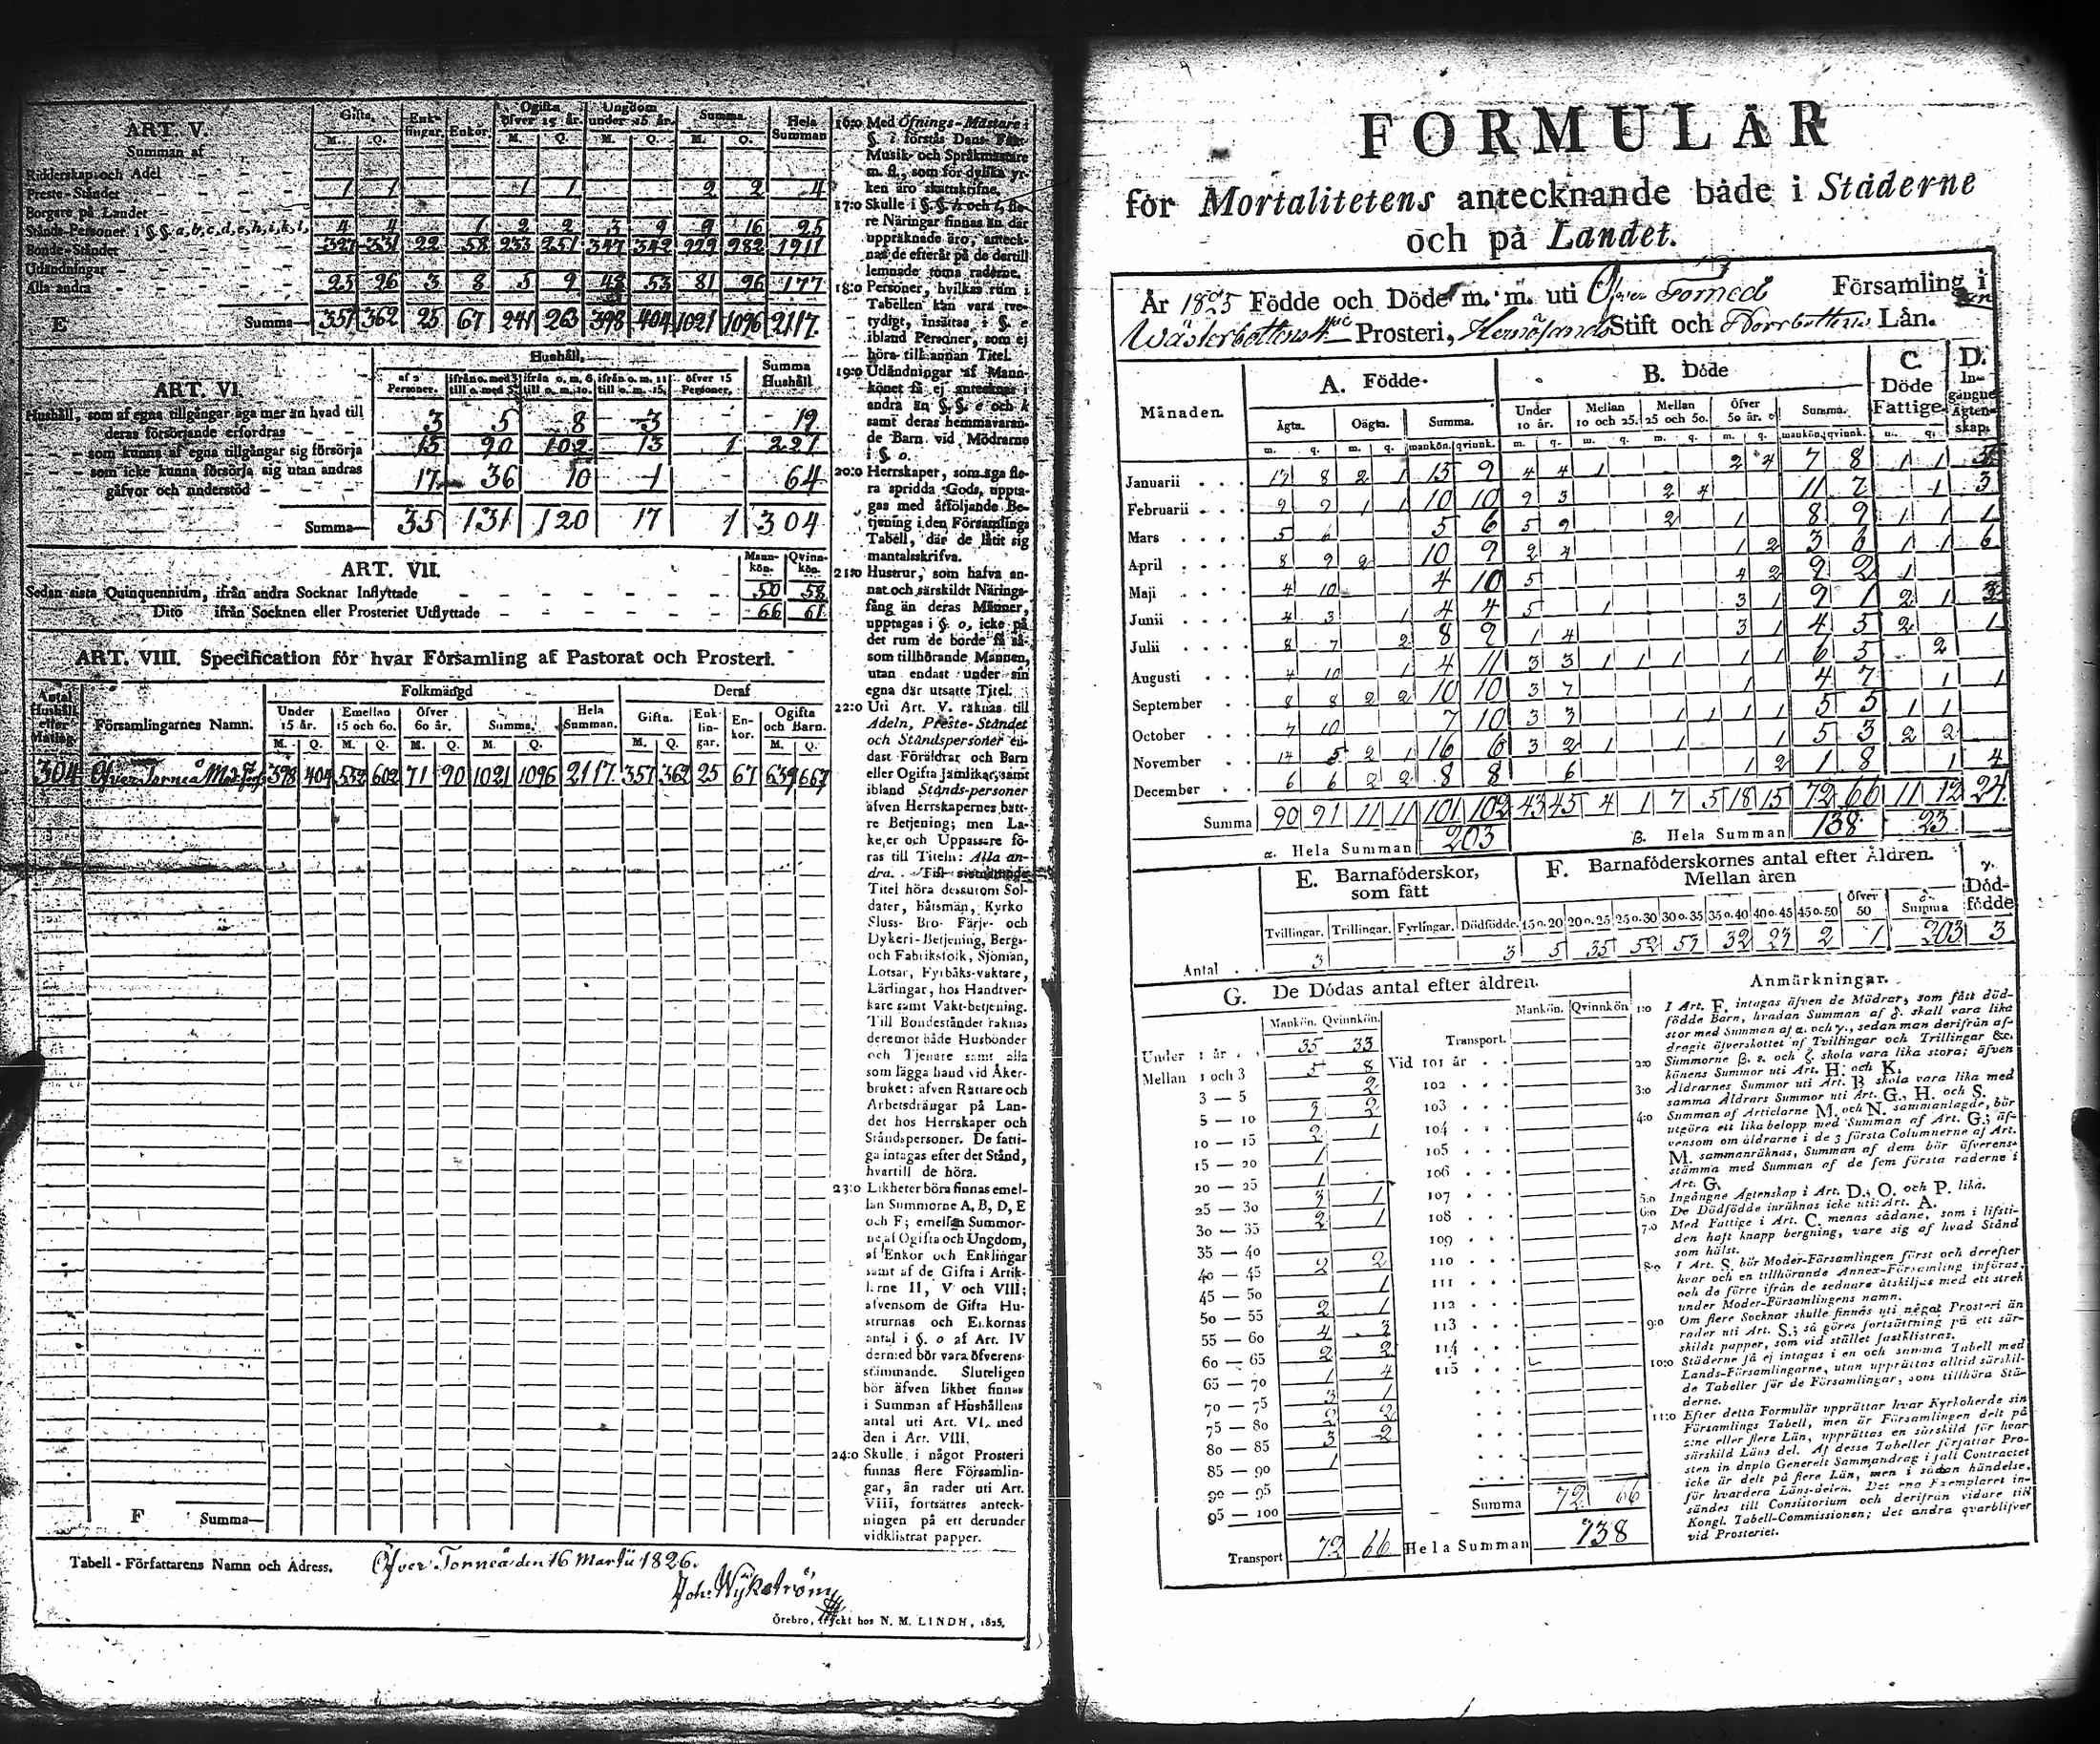 ART. V.
Summan af
Gifta. Enklingar. Enkor. Ogifta öfver 15 år. Ungdom under 15 år. Summa. Hela Summan
M. Q. M. Q. M. Q. M. Q.
Ridderskap och Adel
Preste-Ståndet 1 1 1 1 2 2 4
Borgare på Landet
Stånds-Personer i §.§. a, b, c, d, e, h, i, k, l, 4 4 1 2 2 3 9 9 16 25
Bonde-Ståndet 327 331 22 58 233 251 347 342 929 982 1911
Utländningar
Alla andra 25 26 3 8 5 9 48 53 81 96 177
E Summa— 357 362 25 67 241 263 398 404 1021 1096 2117.
ART. VI.
Hushåll.
af 2 Personer. ifrån o. med 3 till o. med 5. ifrån o. m. 6 till o. m. 10. ifrån o. m. 11 till o. m. 15. öfver 15 Personer. Summa Hushåll
Hushåll, som af egna tillgångar äga mer än hvad till
deras försörjande erfordras 3 5 8 3 - 19
— som kunna af egna tillgångar sig försörja 15 90 102 13 1 221
— som icke kunna försörja sig utan andras
gåfvor och understöd 17 36 10 1 64
Summa— 35 131 120 17 1 304
ART. VII.
Mankön. Qvinkön.
Sedan sista Quinquennium, ifrån andra Socknar Inflyttade 50 58
Dito ifrån Socknen eller Prosteriet Utflyttade 66 61
ART. VIII. Specification för hvar Församling af Pastorat och Prosteri.
Antal Hushåll efter Matlag. Församlingarnes Namn. Folkmängd Deraf
Under 15 år. Emellan 15 och 60. Öfver 60 år. Summa. Hela Summan. Gifta. Enklingar. Enkor. Ogifta och Barn.
M. Q. M. Q. M. Q. M. Q. M. Q. M. Q.
304 Öfver Torneå Mod. Förs. 398 404 552 602 71 90 1021 1096 2117. 357 362 25 67 639 667
F Summa—
Tabell-Författarens Namn och Adress. Öfver Torneå den 16 Martii 1826.
Joh. Wykström
Örebro, tryckt hos N. M. LINDH, 1825.
16:o Med Öfnings-Mästare i
§. i. förstås Dans- Fäkt-
Musik- och Språkmästare
m. fl., som för dylika yr-
ken äro skattskrifne.
17:o Skulle i §.§. h och l, fle-
re Näringar finnas än där
uppräknade äro, anteck-
nas de efteråt på de dertill
lemnade toma raderne.
18:o Personer, hvilkas rum i
Tabellen kan vara tve-
tydigt, insättas i §. e
ibland Personer, som ej
höra till annan Titel.
19:o Utländningar af Mann-
könet få ej antecknas i
andra än §.§. e och k
samt deras hemmavaran-
de Barn vid Mödrarne
i §. o.
20:o Herrskaper, som äga fle-
ra spridda Gods, uppta-
gas med åtföljande Be-
tjening i den Församlings
Tabell, där de låtit sig
mantalsskrifva.
21:o Hustrur, som hafva an-
nat och särskildt Närings-
fång än deras Männer,
upptagas i §. o, icke på
det rum de borde få så-
som tillhörande Mannen,
utan endast under sin
egna där utsatte Titel.
22:o Uti Art. V. räknas till
Adeln, Preste-Ståndet
och Ståndspersoner en-
dast Föräldrar och Barn
eller Ogifta Jämlikar, samt
ibland Stånds-personer
äfven Herrskapernes bätt-
re Betjening; men La-
kejer och Uppassare fö-
ras till Titeln: Alla an-
dra. Till sistnämnde
Titel höra dessutom Sol-
dater, båtsmän, Kyrko
Sluss- Bro- Färje- och
Dykeri-Betjening, Bergs-
och Fabriksfolk, Sjömän,
Lotsar, Fyrbåks-vaktare,
Lärlingar, hos Handtver-
kare samt Vakt-betjening.
Till Bondeståndet räknas
deremot både Husbönder
och Tjenare samt alla
som lägga hand vid Åker-
bruket: äfven Rättare och
Arbetsdrängar på Lan-
det hos Herrskaper och
Ståndspersoner. De fatti-
ga intagas efter det Stånd,
hvartill de höra.
23:o Likheter böra finnas emel-
lan Summorne A, B, D, E
och F; emellan Summor-
ne af Ogifta och Ungdom,
af Enkor och Enklingar
samt af de Gifta i Artik-
larne II, V och VIII;
äfvensom de Gifta Hu-
strurnas och Enkornas
antal i §. o af Art. IV
dermed bör vara öfverens-
stämmande. Sluteligen
bör äfven likhet finnas
i Summan af Hushållens
antal uti Art. VI, med
den i Art. VIII.
24:o Skulle i något Prosteri
finnas flere Församlin-
gar, än rader uti Art.
VIII, fortsättes anteck-
ningen på ett derunder
vidklistrat papper.
FORMULÄR
för Mortalitetens antecknande både i Städerne
och på Landet.
År 1825 Födde och Döde m. m. uti Öfver Torneå Församling i
Wästerbottens Prosteri, Hernösands Stift och Norrbottens Län.
Månaden. A. Födde. B. Döde C. Döde Fattige. D. Ingångne Ägtenskap.
Ägta. Oägta. Summa. Under 10 år. Mellan 10 och 25. Mellan 25 och 50. Öfver 50 år. Summa.
m. q. m. q. mankön. qvinnk. m. q. m. q. m. q. m. q. mankön. qvinnk. m. q.
Januarii 13 8 2 1 15 9 4 4 1 2 4 7 8 1 1
Februarii 9 9 1 1 10 10 9 3 2 4 11 7 1 3
Mars 5 6 5 6 5 9 2 1 8 9 1 1 1
April 8 9 2 10 9 2 4 1 2 3 6 1 1 6
Maji 4 10 4 10 5 4 2 9 2 1
Junii 4 3 1 4 4 5 1 3 1 9 1 2 1
Julii 8 7 2 8 9 1 4 3 1 4 5 2 1
Augusti 4 10 1 4 11 3 3 1 1 1 1 1 6 5 2
September 8 8 2 2 10 10 3 7 1 4 7 1 1
October 7 10 7 10 3 3 1 1 1 1 5 5 1 1
November 14 5 2 1 16 6 3 2 1 1 1 5 3 2 2
December 6 6 2 2 8 8 6 1 2 1 8 1 4
Summa 90 91 11 11 101 102 43 45 4 1 7 5 18 15 72 66 11 12 24
α. Hela Summan 203 β. Hela Summan 138 23
E. Barnaföderskor, som fått
F. Barnaföderskornes antal efter Åldren. Mellan åren
γ. Dödfödde
Tvillingar. Trillingar. Fyrlingar. Dödfödde. 15 o. 20 20 o. 25 25 o. 30 30 o. 35 35 o. 40 40 o. 45 45 o. 50 öfver 50 δ. Summa
Antal 3 3 5 35 52 53 32 23 2 1 203 3
G. De Dödas antal efter åldren.
Mankön. Qvinnkön. Mankön. Qvinnkön
Under 1 år 35 33 Transport.
Mellan 1 och 3 5 8 Vid 101 år
3 — 5 2 102
5 — 10 3 2 103
10 — 15 2 1 104
15 — 20 1 105
20 — 25 1 106
25 — 30 3 1 107
30 — 35 2 1 108
35 — 40 109
40 — 45 2 2 110
45 — 50 1 111
50 — 55 2 1 112
55 — 60 4 3 113
60 — 65 2 2 114
65 — 70 1 4 115
70 — 75 3 1
75 — 80 2 2
80 — 85 3 2
85 — 90 1
90 — 95
95 — 100 Summa 72 66
Transport 72 66 Hela Summan 138
Anmärkningar.
1:o I Art. F. intagas äfven de Mödrar, som fått död-
födde Barn, hvadan Summan af δ. skall vara lika
stor med Summan af α. och γ., sedan man derifrån af-
dragit öfverskottet af Tvillingar och Trillingar &c.
2:o Summorne β. ε. och ζ. skola vara lika stora; äfven
könens Summor uti Art. H. och K.
3:o Åldrarnes Summor uti Art. B skola vara lika med
samma Åldrars Summor uti Art. G., H. och S.
4:o Summan af Articlarne M. och N. sammanlagde, bör
utgöra ett lika belopp med Summan af Art. G.; äf-
vensom om åldrarne i de 3 första Columnerne af Art.
M. sammanräknas, Summan af dem bör öfverens-
stämma med Summan af de fem första raderne i
Art. G.
5:o Ingångne Ägtenskap i Art. D., O. och P. lika.
6:o De Dödfödde inräknas icke uti Art. A.
7:o Med Fattige i Art. C. menas sådane, som i lifsti-
den haft knapp bergning, vare sig af hvad Stånd
som hälst.
8:o I Art. S. bör Moder-Församlingen först och derefter
hvar och en tillhörande Annex-Församling införas,
och de förre ifrån de sednare åtskiljas med ett streck
under Moder-Församlingens namn.
9:o Om flere Socknar skulle finnas uti något Prosteri än
rader uti Art. S.; så göres fortsättning på ett sär-
skildt papper, som vid stället fastklistras.
10:o Städerne få ej intagas i en och samma Tabell med
Lands-Församlingarne, utan upprättas alltid särskil-
de Tabeller för de Församlingar, som tillhöra Stä-
derne.
11:o Efter detta Formulär upprättar hvar Kyrkoherde sin
Församlings Tabell, men är Församlingen delt på
2:ne eller flere Län, upprättas en särskild för hvar
särskild Läns del. Af desse Tabeller författar Pro-
sten in duplo Generelt Sammandrag i fall Contractet
icke är delt på flere Län, men i sådan händelse,
för hvardera Läns-delen. Det ena Exemplaret in-
sändes till Consistorium och derifrån vidare till
Kongl. Tabell-Commissionen; det andra qvarblifver
vid Prosteriet.